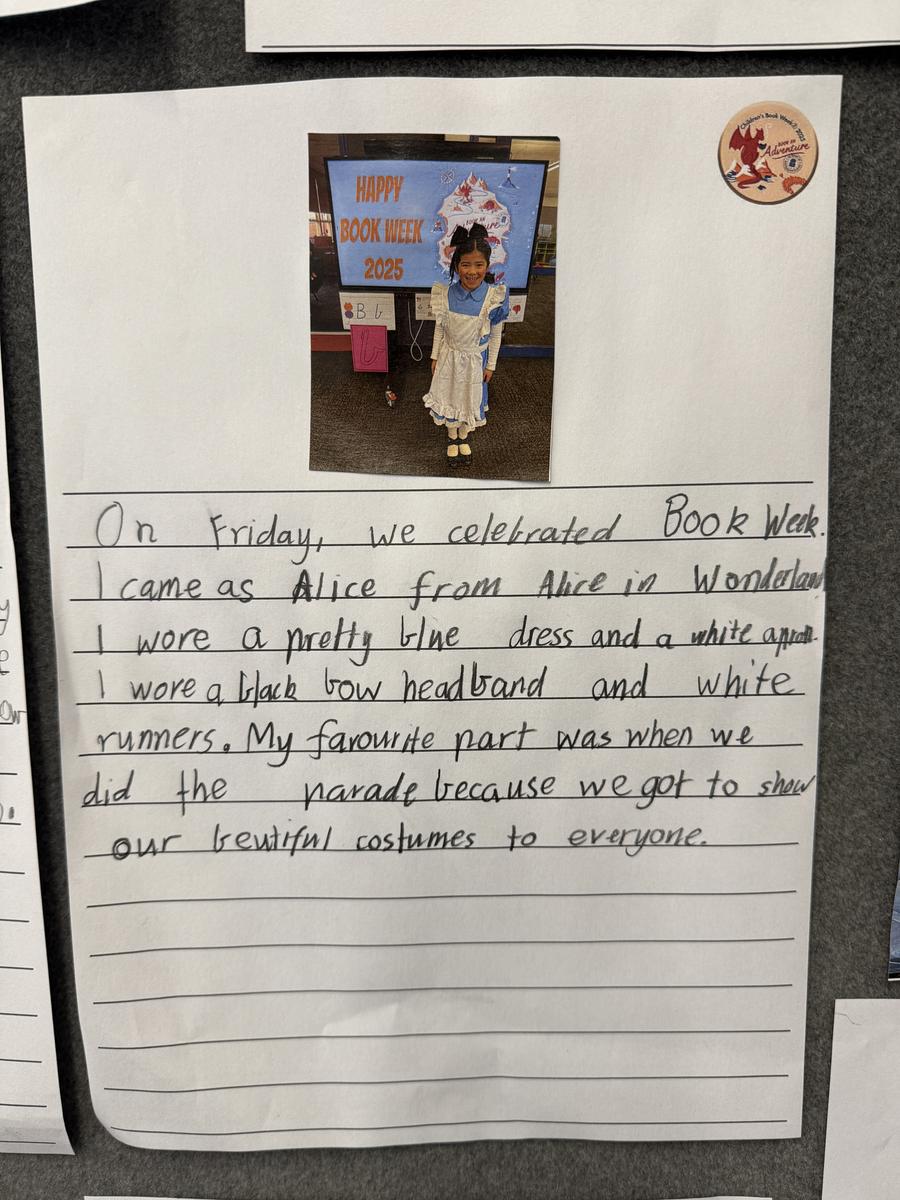 Children's Book Week 2025
BOOK AN
Adventure
HAPPY
BOOK WEEK
2025
B b
b
On Friday, we celebrated Book Week.
I came as Alice from Alice in Wonderland
I wore a pretty blue dress and a white apron.
I wore a black bow headband and white
runners. My favourite part was when we
did the parade because we got to show
our beutiful costumes to everyone.